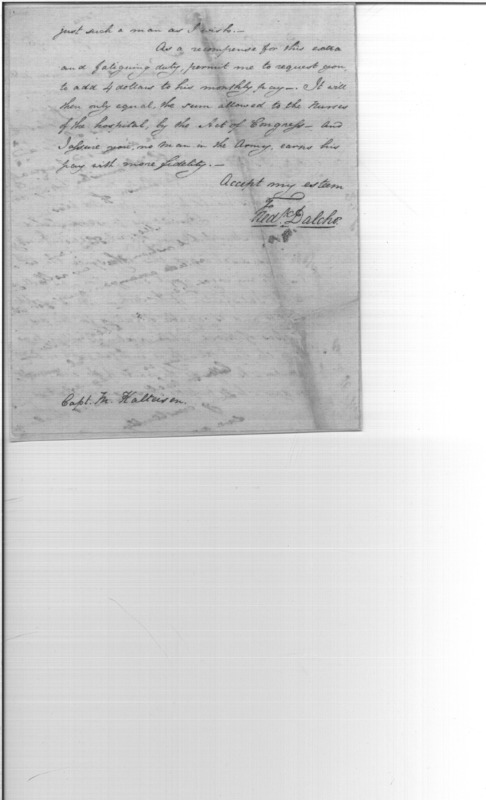 just such a man as I wish.—
As a recompense for this extra
and fatiguing duty, permit me to request you,
to add 4 dollars to his monthly pay—. It will
then only equal, the sum allowed to the Nurses
of the hospital, by the Act of Congress— and
I assure you, no man in the Army, earns his
pay with more fidelity.—
Accept my esteem
Fredk. Dalcho.
Capt. Fr.